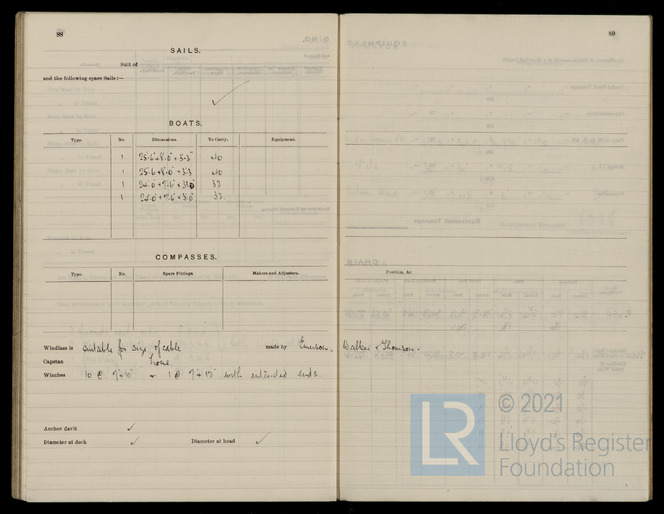 88
SAILS.
Suit of
and the following spare Sails:—
BOATS.
Type. No. Dimensions. To Carry. Equipment.
1 25·6 × 8·0 × 3·3 40
1 25·6 × 8·0 × 3·3 40
1 24·0 × 7·6 × 3·0 33
1 24·0 × 7·6 × 3·0 33
COMPASSES.
Type. No. Spare Fittings. Makers and Adjusters.
Windlass is suitable for size of cable made by Emerson, Walker & Thomson.
Capstan none
Winches 10 @ 7 × 10 + 1 @ 7 × 12 with extended ends.
Anchor davit ✓
Diameter at deck ✓ Diameter at head ✓
89
Position, &c
© 2021
LR
Lloyd's Register
Foundation